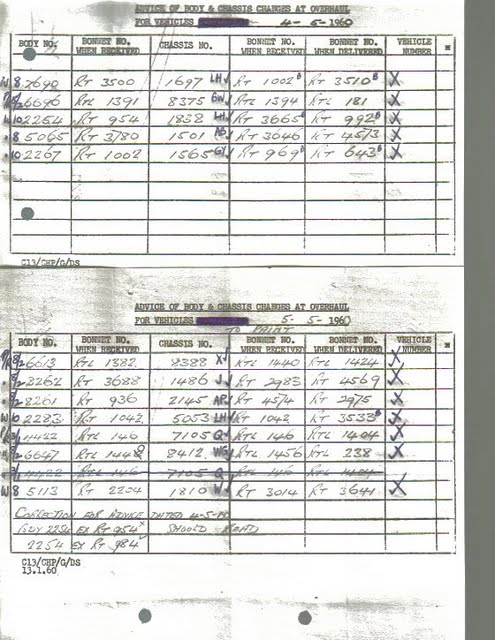 ADVICE OF BODY & CHASSIS CHANGES AT OVERHAUL
FOR VEHICLES 4-5-1960
BODY NO. BONNET NO. WHEN RECEIVED CHASSIS NO. BONNET NO. WHEN RECEIVED BONNET NO. WHEN DELIVERED VEHICLE NUMBER
W 8 2690 RT 3500 1697 LH RT 1002B RT 3510B X
6696 RTL 1391 8375 GW RTL 1394 RTL 181 X
10 2254 RT 954 1838 LH RT 3665B RT 992B X
8 5065 RT 3780 1501 RT 3646 RT 4573 X
10 2267 RT 1002 1565 GY RT 969B RT 643B X
C13/CHP/G/DS
ADVICE OF BODY & CHASSIS CHANGES AT OVERHAUL
FOR VEHICLES 5-5-1960
TO PAINT
BODY NO. BONNET NO. WHEN RECEIVED CHASSIS NO. BONNET NO. WHEN RECEIVED BONNET NO. WHEN DELIVERED VEHICLE NUMBER
6613 RTL 1382 8388 X RTL 1440 RTL 1424 X
8262 RT 3688 1486 J RT 2983 RT 4569 X
8261 RT 936 2145 AP RT 4574 RT 2975 X
W 10 2283 RT 1042 5053 LH RT 1042 RT 3533B X
4422 RTL 146 7105 Q RTL 146 RTL 1404 X
6647 RTL 1448 8412 WG RTL 1456 RTL 238 X
4422 RTL 146 7105 Q RTL 146 RTL 1404
W 8 5113 RT 2204 1810 W RT 3014 RT 3641 X
CORRECTION FOR ADVICE DATED 4-5-60
BODY 2254 EX RT 954 X SHOULD READ
2254 EX RT 984
C13/CHP/G/DS
13.1.60